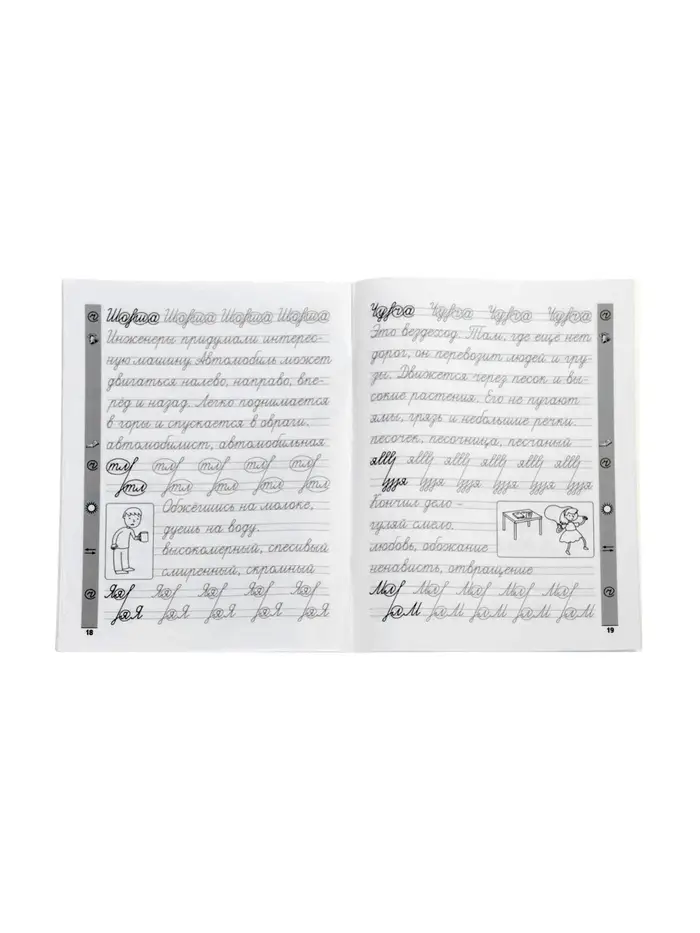 Шорша Шорша Шорша Шорша
Инженеры придумали интерес-
ную машину. Автомобиль может
двигаться налево, направо, впе-
рёд и назад. Легко поднимается
в горы и спускается в овраги.
автомобилист, автомобильная
тл тл тл тл тл
тл тл тл тл тл
Обжёгшись на молоке,
дуешь на воду.
высокомерный, спесивый
смиренный, скромный
Яя Яя Яя Яя Яя
яЯ яЯ яЯ яЯ яЯ
18
Чурга Чурга Чурга Чурга
Это вездеход. Там, где ещё нет
дорог, он перевозит людей и гру-
зы. Движется через песок и вы-
сокие растения. Его не пугают
ямы, грязь и небольшие речки.
песочек, песочница, песчаный
Кончил дело –
гуляй смело.
любовь, обожание
ненависть, отвращение
19